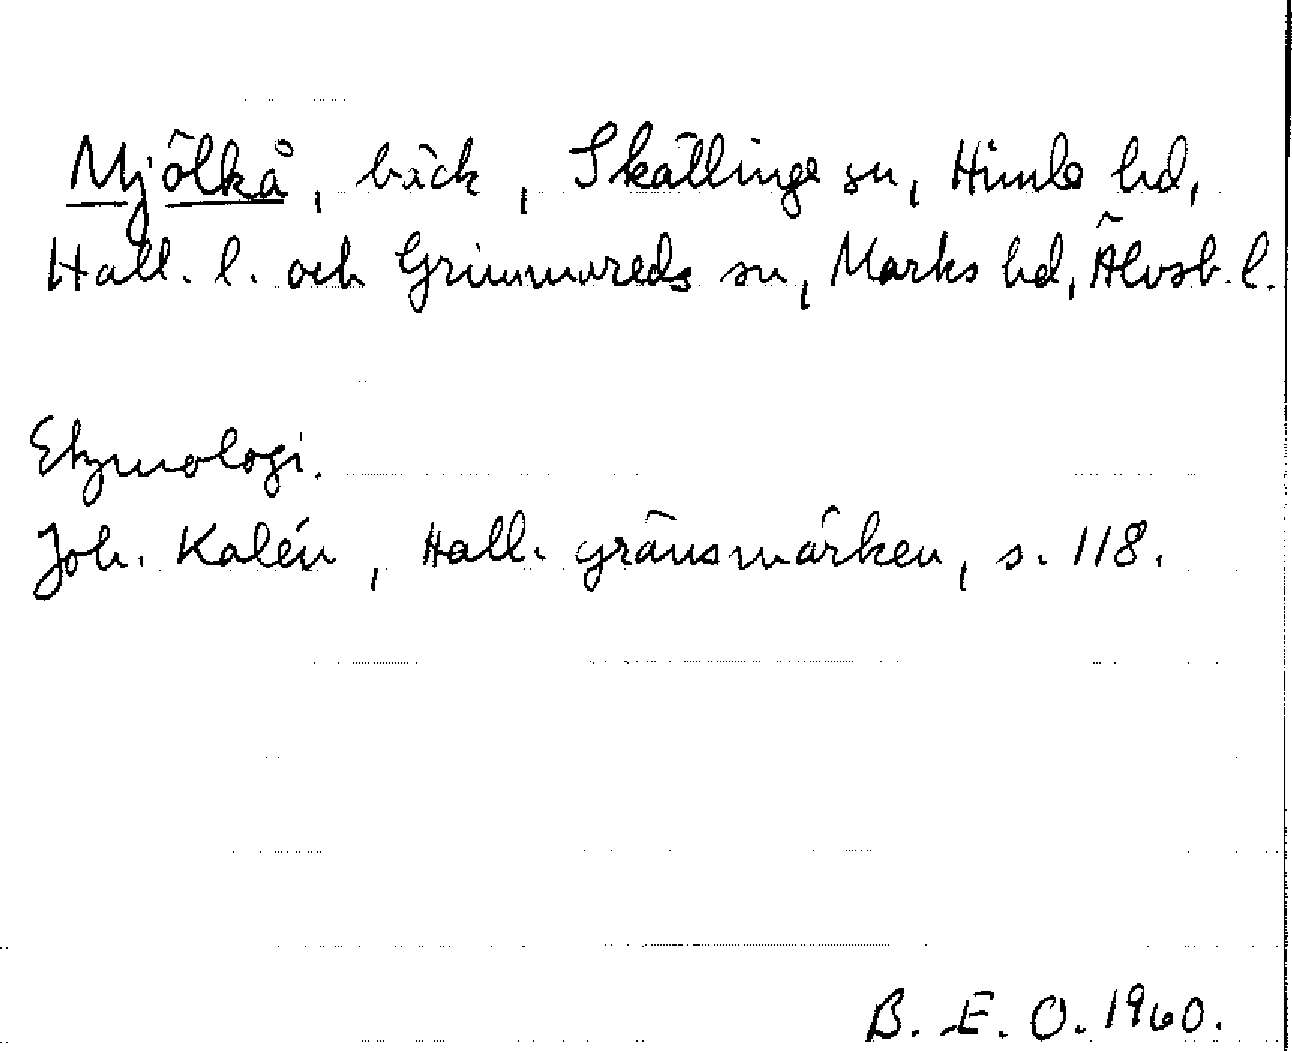 Mjölkå, bäck, Skällinge sn, Himle hd,
Hall. l. och Grimmareds sn, Marks hd, Älvsb. l.
Etymologi.
Joh. Kalén, Hall. gränsmärken, s. 118.
B. E. O. 1960.